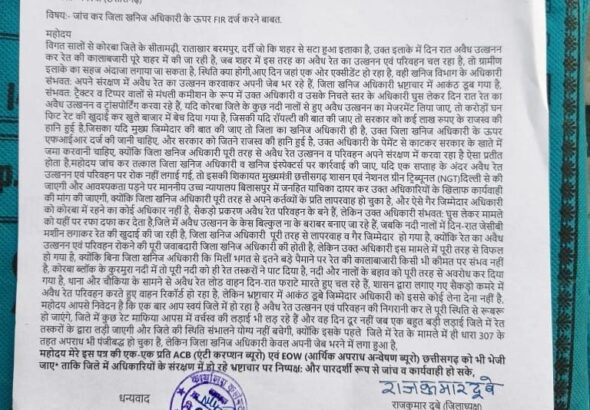 विषय:- जांच कर जिला खनिज अधिकारी के ऊपर FIR दर्ज करने बाबत.
महोदय
विगत सालों से कोरबा जिले के सीतामढ़ी, राताखार बरमपुर, दर्री जो कि शहर से सटा हुआ इलाका है, उक्त इलाके में दिन रात अवैध उत्खनन
कर रेत की कालाबाजारी पूरे शहर में की जा रही है, जब शहर में इस तरह का अवैध रेत का उत्खनन एवं परिवहन चल रहा है, तो ग्रामीण
इलाके का सहज अंदाजा लगाया जा सकता है, स्थिति क्या होगी,आए दिन जहां एक ओर एक्सीडेंट हो रहा है, वही खनिज विभाग के अधिकारी
संभवत: अपने संरक्षण में अवैध रेत का उत्खनन करवाकर अपनी जेब भर रहे हैं, जिला खनिज अधिकारी भ्रष्टाचार में आकंठ डूब गया है,
संभवत: ट्रैक्टर व टिप्पर वालों से मंथली कमीशन के रूप में उक्त अधिकारी व उसके निचले स्तर के अधिकारी घुस लेकर दिन रात रेत का
अवैध उत्खनन व ट्रांसपोर्टिंग करवा रहे हैं, यदि कोरबा जिले के कुछ नदी नालों से हुए अवैध उत्खनन का मेजरमेंट लिया जाए, तो करोड़ों घन
फिट रेत की खुदाई कर खुले बाजार में बेच दिया गया है, जिसकी यदि रॉयल्टी की बात की जाए तो सरकार को कई लाख रुपए के राजस्व की
हानि हुई है,जिसका यदि मुख्य जिम्मेदार की बात की जाए तो जिला का खनिज अधिकारी ही है, उक्त जिला खनिज अधिकारी के ऊपर
एफआईआर दर्ज की जानी चाहिए, और सरकार को जितने राजस्व की हानि हुई है. उक्त अधिकारी के पेमेंट से काटकर सरकार के खाते में
जमा करवानी चाहिए, क्योंकि जिला खनिज अधिकारी पूरी तरह से अवैध रेत का उत्खनन व परिवहन अपने संरक्षण में करवा रहा है ऐसा प्रतीत
होता है,महोदय जांच कर तत्काल जिला खनिज अधिकारी व खनिज इंस्पेक्टर पर कार्रवाई की जाए, यदि एक सप्ताह के अंदर अवैध
उत्खनन एवं परिवहन पर रोक नहीं लगाई गई, तो इसकी शिकायत मुख्यमंत्री छत्तीसगढ़ शासन एवं नेशनल ग्रीन ट्रिब्यूनल (NGT)दिल्ली से की
जाएगी और आवश्यकता पड़ने पर माननीय उच्च न्यायालय बिलासपुर में जनहित याचिका दायर कर उक्त अधिकारियों के खिलाफ कार्यवाही
की मांग की जाएगी, क्योंकि जिला खनिज अधिकारी पूरी तरह से अपने कर्तव्यों के प्रति लापरवाह हो चुका है, और ऐसे गैर जिम्मेदार अधिकारी
को कोरबा में रहने का कोई अधिकार नहीं है, सैकड़ो प्रकरण अवैध परिवहन के बने हैं, लेकिन उक्त अधिकारी संभवत: घुस लेकर मामले
को यहीं पर रफा दफा कर देता है,जिले में अवैध उत्खनन के केस बिल्कुल ना के बराबर बनाए जा रहे हैं, जबकि नदी नालों में दिन-रात जेसीबी
मशीन लगाकर रेत की खुदाई की जा रही है, जिला खनिज अधिकारी पूरी तरह से लापरवाह व गैर जिम्मेदार हो गया है, क्योंकि रेत का अवैध
उत्खनन एवं परिवहन रोकने की पूरी जवाबदारी जिला खनिज अधिकारी की होती है, लेकिन उक्त अधिकारी इस मामले में पूरी तरह से विफल
हो गया है, क्योंकि बिना जिला खनिज अधिकारी कि मिली भगत से इतने बड़े पैमाने पर रेत की कालाबाजारी किसी भी कीमत पर संभव नहीं
है, कोरबा ब्लॉक के कुरमुरा नदी में तो पूरी नदी को ही रेत तस्करों ने पाट दिया है, नदी और नालों के बहाव को पूरी तरह से अवरोध कर दिया
गया है, थाना और चौकिया के सामने से अवैध रेत लोड वाहन दिन-रात फर्राटे मारते हुए चल रहे हैं, शासन द्वारा लगाए गए सैकड़ो कमरे में
अवैध रेत परिवहन करते हुए वाहन रिकॉर्ड हो रहा है, लेकिन भ्रष्टाचार में आकंठ डूबे जिम्मेदार अधिकारी को इससे कोई लेना देना नहीं है.
महोदय आपसे निवेदन है कि एक बार आप स्वयं जिले में हो रहा है अवैध रेत उत्खनन एवं परिवहन की निगरानी कर ले पूरी स्थिति से रूबरू
हो जाएंगे, जिले में कुछ रेत माफिया आपस में वर्चस्व की लड़ाई भी लड़ रहे हैं और वह दिन दूर नहीं जब एक बहुत बड़ी लड़ाई जिले में रेत
तस्करों के द्वारा लड़ी जाएगी और जिले की स्थिति संभालने योग्य नहीं बचेगी, क्योंकि इसके पहले जिले में रेत के मामले में ही धारा 307 के
तहत अपराध भी पंजीबद्ध हो चुका है, लेकिन जिला खनिज अधिकारी केवल अपनी जेब भरने में लगा हुआ है.
महोदय मेरे इस पत्र की एक-एक प्रति ACB (एंटी करप्शन ब्यूरो) एवं EOW (आर्थिक अपराध अन्वेषण ब्यूरो) छत्तीसगढ़ को भी भेजी
जाए॰ ताकि जिले में अधिकारियों के संरक्षण में हो रहे भ्रष्टाचार पर निष्पक्ष: और पारदर्शी रूप से जांच व कार्यवाही हो सके,
राजकुमार दुबे
धन्यवाद
राजकुमार दुबे (जिलाध्यक्ष)